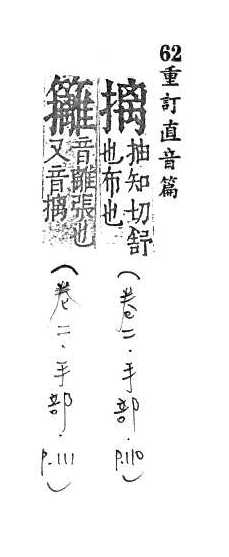 62重訂直音篇
摛
抽知切舒
也布也
(卷二.手部.p.110)
音離張也
又音摛
(卷二.手部.p.111)